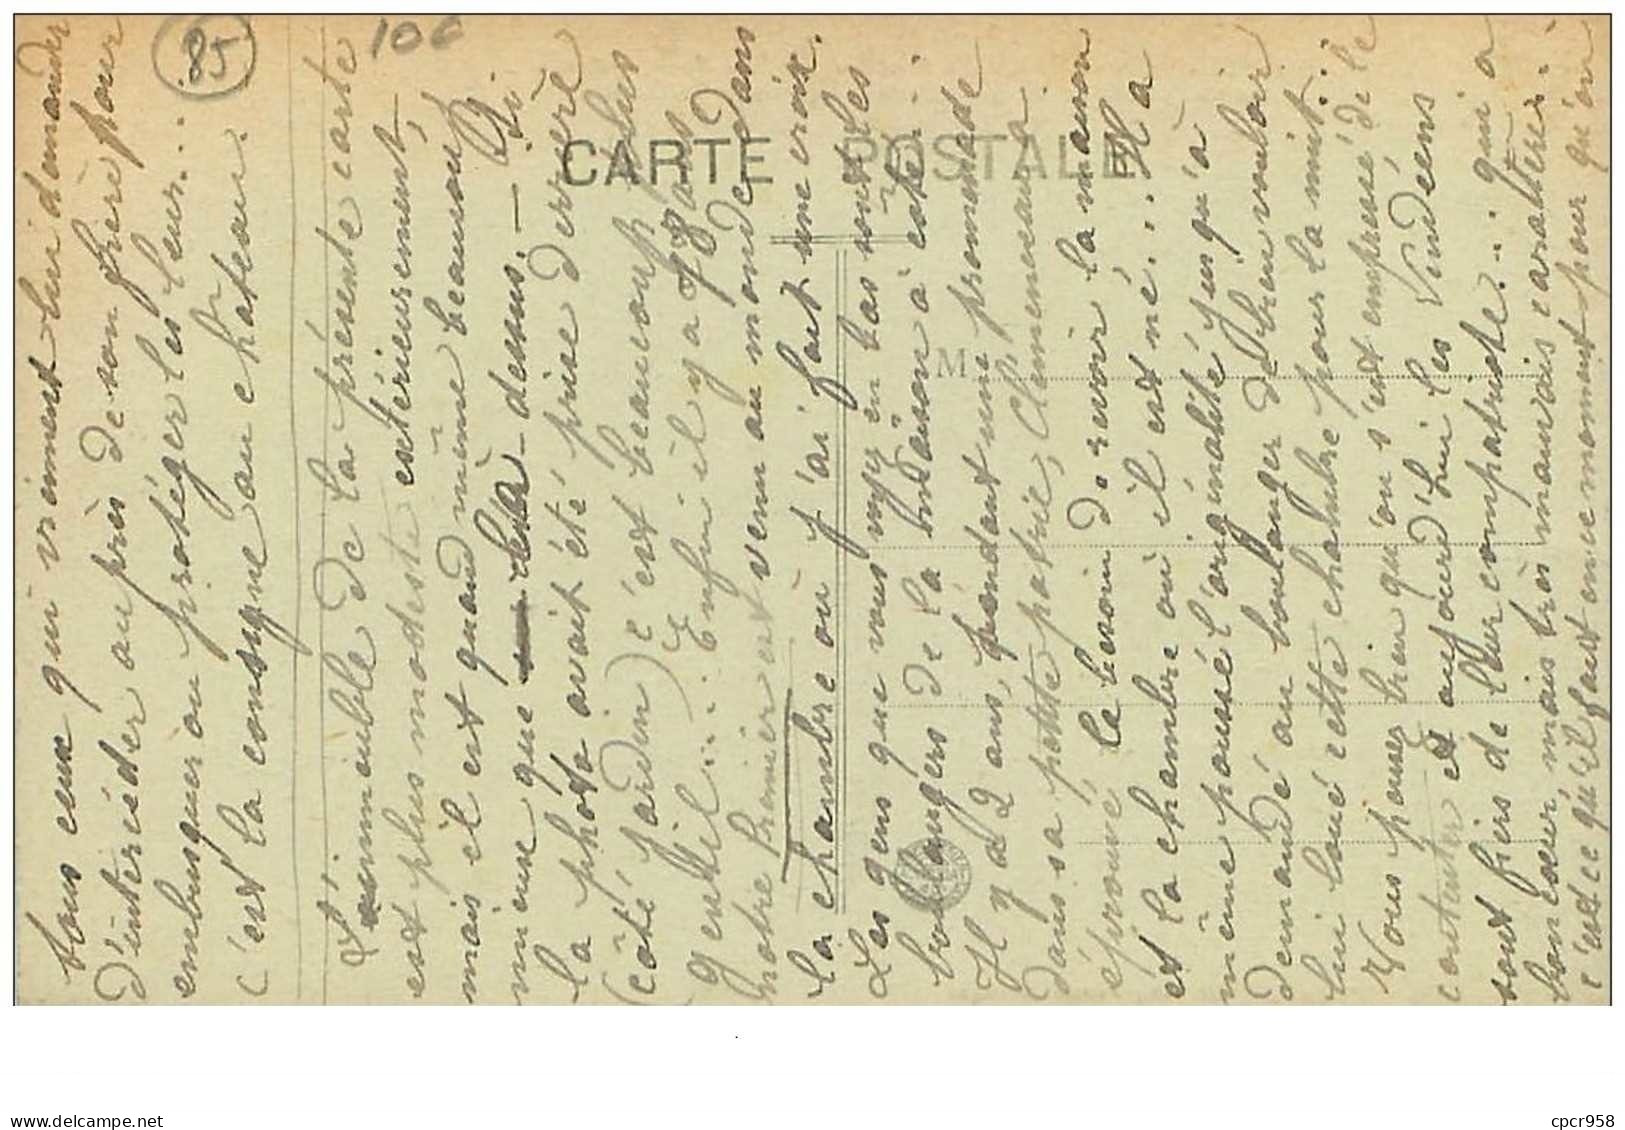 tous ceux qui viennent lui demander
d'intercéder auprès de son frère pour
embusquer ou protéger les leur...
c'est la consigne au château.
L'immeuble de la présente carte
est plus modeste extérieurement,
mais il est quand même beaucoup
mieux que celui-là - dessus. — (Si
la photo avait été prise derrière
(côté jardin) c'est beaucoup plus
gentil... Enfin il y a 78 ans
notre Premier est venu au monde dans
la chambre où j'ai fait une croix.
Les gens que vous voyez en bas sont les
boulangers de la maison à côté...
Il y a 2 ans, pendant une promenade
dans sa petite patrie, Clemenceau a
éprouvé le besoin de revoir la maison
et la chambre où il est né... Il a
même poussé l'originalité jusqu'à
demandé au boulanger de bien vouloir
lui loué cette chambre pour la nuit.
Vous pensez bien qu'on s'est empressé de le
contenter et aujourd'hui les Vendéens
sont fiers de leur compatriote... qui a
bon cœur, mais très mauvais caractère.
c'est ce qu'il faut en ce moment pour qu'on
85
10€
CARTE POSTALE
M
delcampe.net
cpcr958